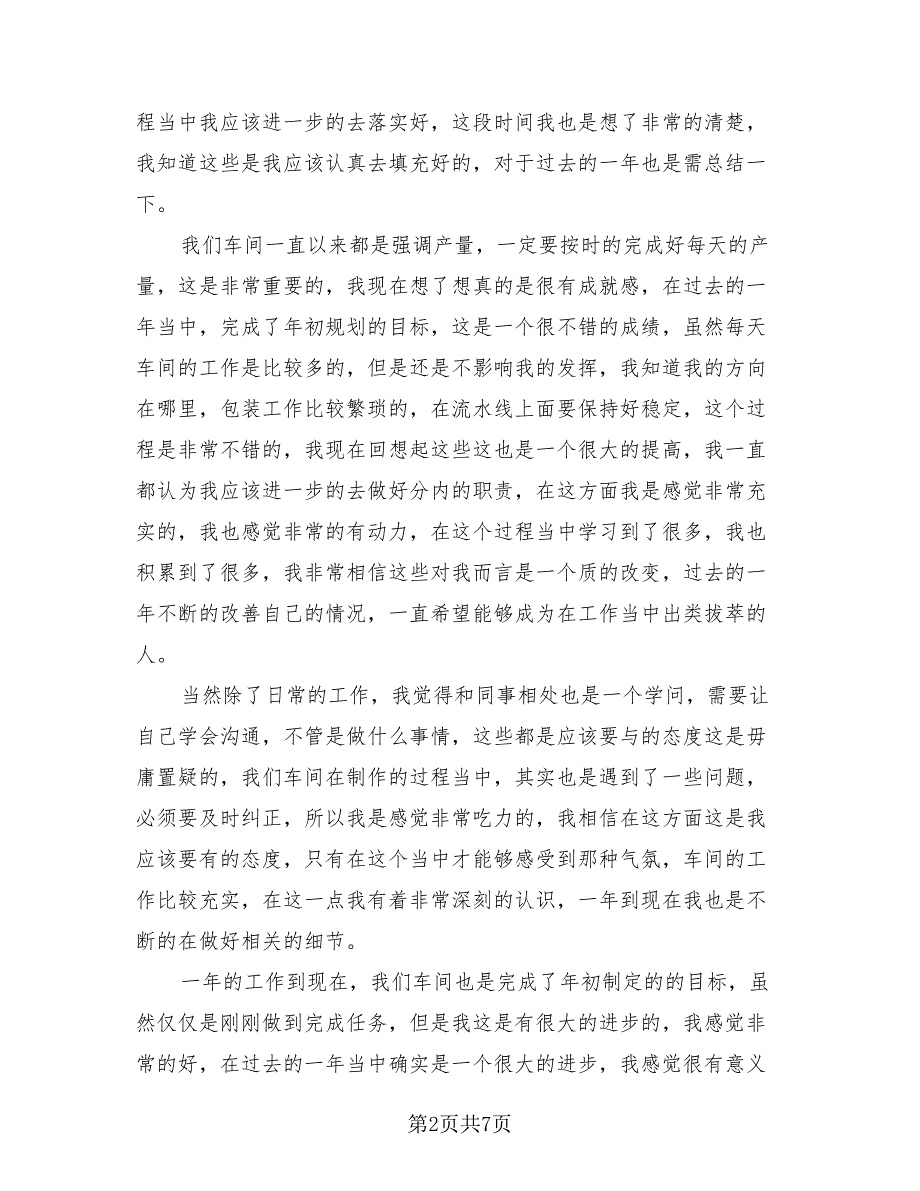 程当中我应该进一步的去落实好，这段时间我也是想了非常的清楚，
我知道这些是我应该认真去填充好的，对于过去的一年也是需总结一
下。
我们车间一直以来都是强调产量，一定要按时的完成好每天的产
量，这是非常重要的，我现在想了想真的是很有成就感，在过去的一
年当中，完成了年初规划的目标，这是一个很不错的成绩，虽然每天
车间的工作是比较多的，但是还是不影响我的发挥，我知道我的方向
在哪里，包装工作比较繁琐的，在流水线上面要保持好稳定，这个过
程是非常不错的，我现在回想起这些这也是一个很大的提高，我一直
都认为我应该进一步的去做好分内的职责，在这方面我是感觉非常充
实的，我也感觉非常的有动力，在这个过程当中学习到了很多，我也
积累到了很多，我非常相信这些对我而言是一个质的改变，过去的一
年不断的改善自己的情况，一直希望能够成为在工作当中出类拔萃的
人。
当然除了日常的工作，我觉得和同事相处也是一个学问，需要让
自己学会沟通，不管是做什么事情，这些都是应该要与的态度这是毋
庸置疑的，我们车间在制作的过程当中，其实也是遇到了一些问题，
必须要及时纠正，所以我是感觉非常吃力的，我相信在这方面这是我
应该要有的态度，只有在这个当中才能够感受到那种气氛，车间的工
作比较充实，在这一点我有着非常深刻的认识，一年到现在我也是不
断的在做好相关的细节。
一年的工作到现在，我们车间也是完成了年初制定的的目标，虽
然仅仅是刚刚做到完成任务，但是我这是有很大的进步的，我感觉非
常的好，在过去的一年当中确实是一个很大的进步，我感觉很有意义
第2页共7页